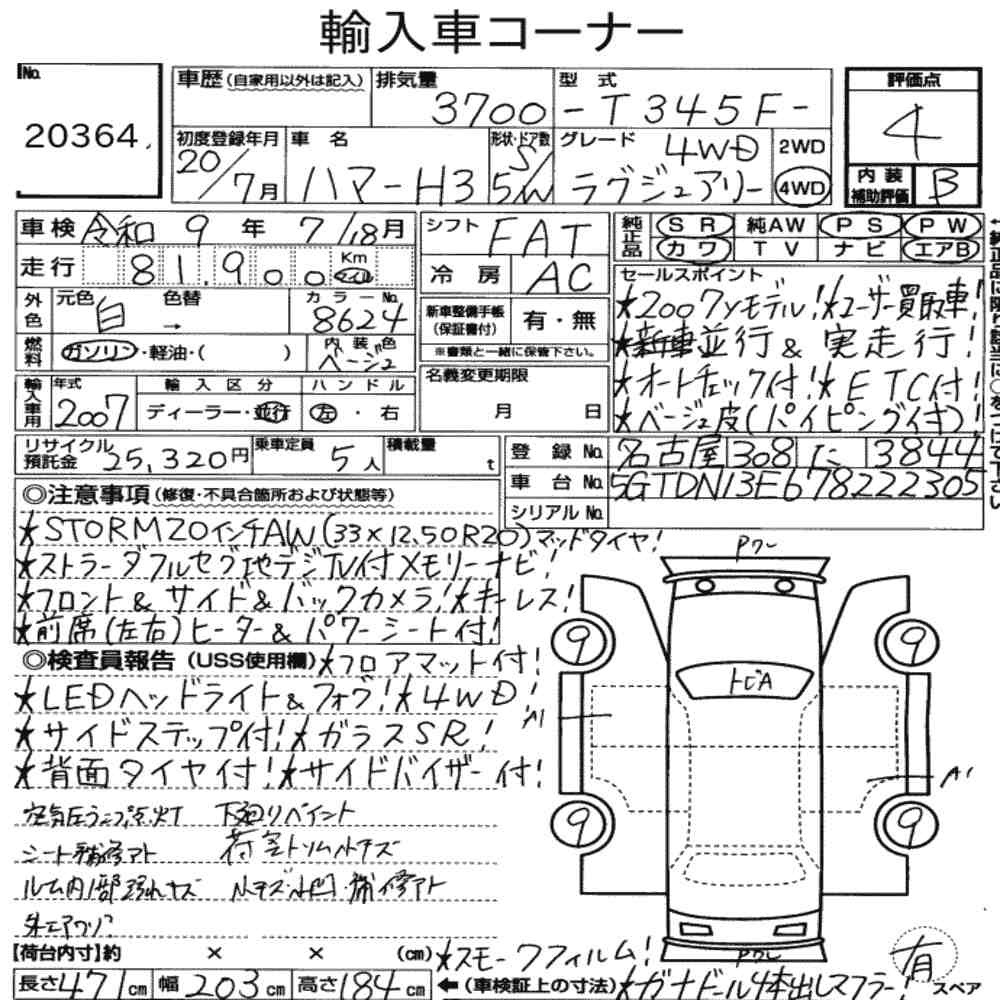 輸入車コーナー
No. 20364
車歴 (自家用以外は記入) 排気量 3700 型式 -T345F- 評価点 4
初度登録年月 20/7月 車名 ハマーH3 形状・ドア数 S/5W グレード 4WD ラグジュアリー 2WD 4WD 内装補助評価 B
車検 令和 9年 7/18月 シフト FAT 純正品 SR 純AW PS PW
走行 81,900 Km マイル 冷房 AC カワ TV ナビ エアB
外色 元色 白 → 色替 カラーNo. 8624 新車整備手帳(保証書付) 有・無
燃料 ガソリン・軽油・( ) 内装色 ベージュ ※書類と一緒に保管下さい。
輸入車用 年式 2007 輸入区分 ディーラー・並行 ハンドル 左・右 名義変更期限 月 日
セールスポイント
★2007yモデル!★ユーザー買取車!
★新車並行 & 実走行!
★オートチェック付!★ETC付!
★ベージュ皮(パイピング付)!
リサイクル預託金 25,320円 乗車定員 5人 積載量 t
登録No. 名古屋308 に 3844
車台No. 5GTDN13E678222305
シリアルNo.
◎注意事項 (修復・不具合箇所および状態等)
★STORM20インチAW(33×12.50R20)マッドタイヤ!
★ストラーダフルセグ地デジTV付メモリーナビ!
★フロント&サイド&バックカメラ!★キーレス!
★前席(左右)ヒーター&パワーシート付!
◎検査員報告 (USS使用欄) ★フロアマット付!
★LEDヘッドライト&フォグ!★4WD!
★サイドステップ付!★ガラスSR!
★背面タイヤ付!★サイドバイザー付!
空気圧ランプ点灯 下廻りペイント
シート補修アト 荷室トリムキズ
ルーム内 キズ 小キズ小凹・補修アト
外エアワリ
Pクレ
トビA
A1
A1
9 9
9 9
Pクレ
【荷台内寸】約 × × (cm) ★スモークフィルム!
長さ471cm 幅203cm 高さ184cm ←(車検証上の寸法) ★ガナドール4本出しマフラー! 有 スペア